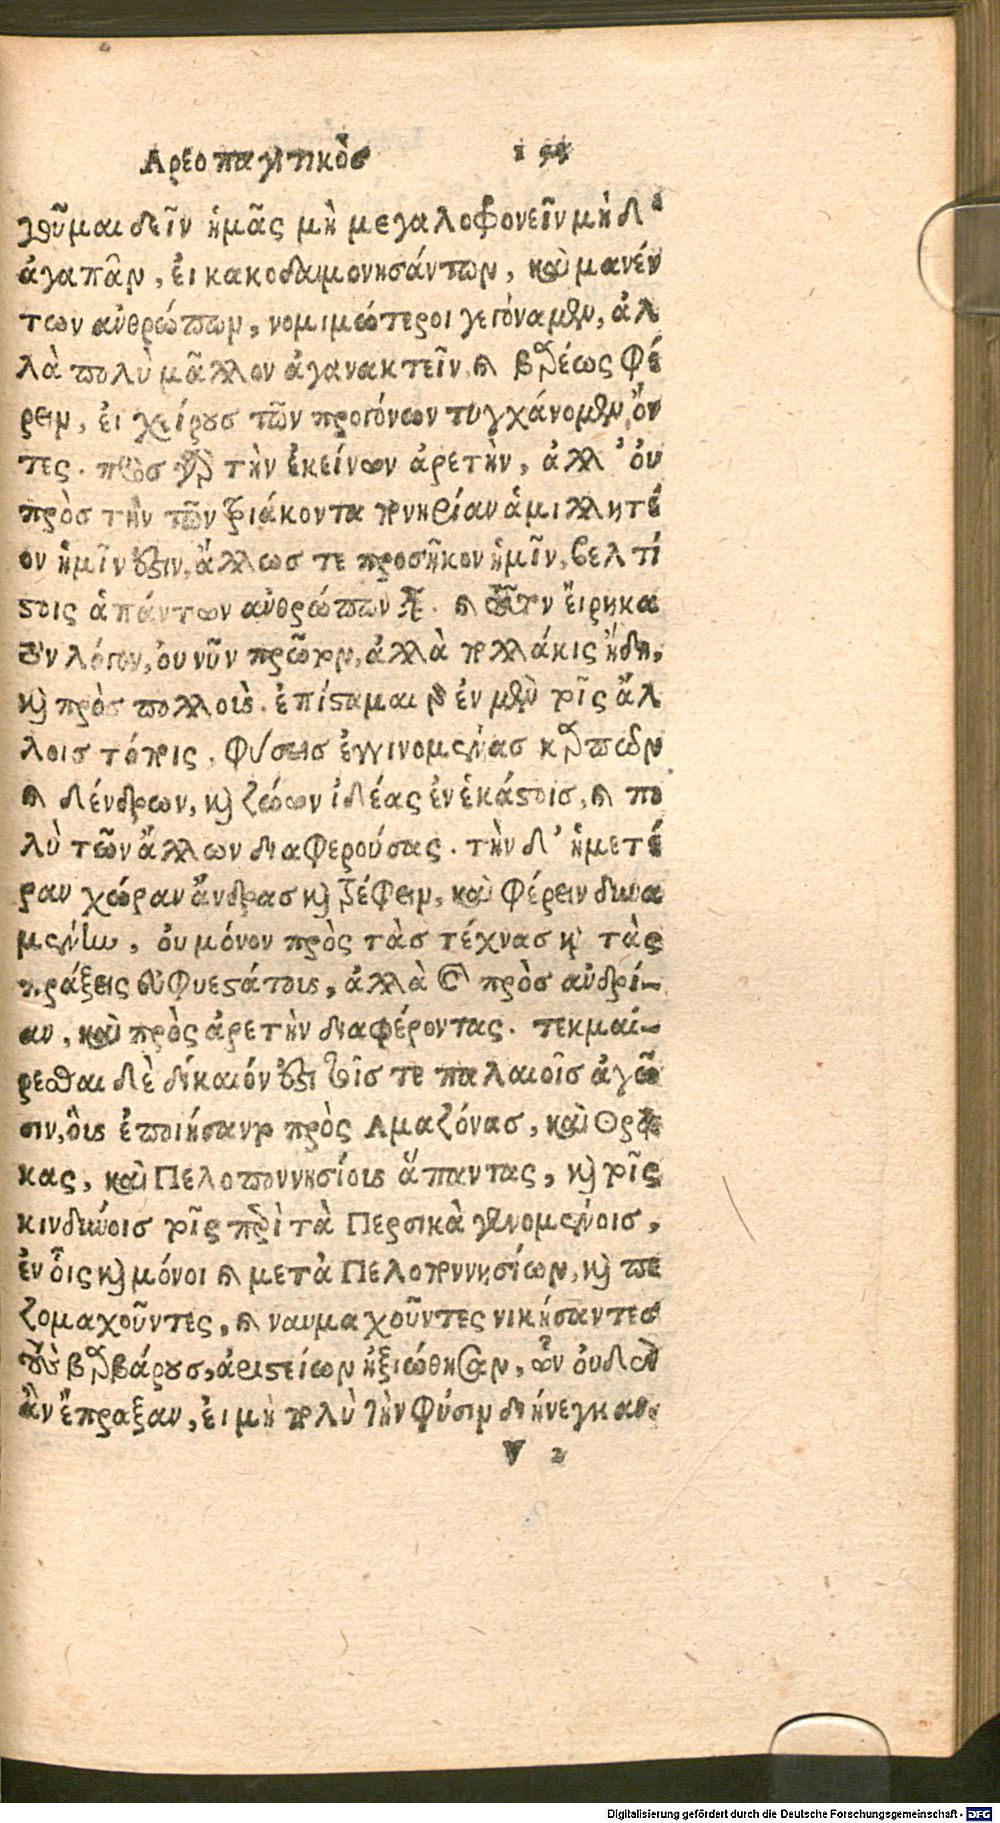 Αρεοπαγιτικὸς 155
γοῦμαι δεῖν ἡμᾶς μὴ μεγαλοφρονεῖν μὴ δ'
ἀγαπᾶν, ἐι κακοδαιμονησάντων, καὶ μανέν
των ἀνθρώπων, νομιμώτεροι γεγόναμεν, ἀλ
λὰ πολὺ μᾶλλον ἀγανακτεῖν καὶ βαρέως φέ
ρειν, ἐι χείρους τῶν προγόνων τυγχάνομεν, ὄν
τες. πρὸς γὰρ τὴν ἐκείνων ἀρετὴν, ἀλλ' ὀυ
πρὸς τὴν τῶν τριάκοντα πονηρίαν ἁμιλλητέ
ον ἡμῖν ἐστιν, ἄλλως τε προσῆκον ἡμῖν, βελτί
στοις ἁπάντων ἀνθρώπων εἶναι. καὶ τοῦτον ἔιρηκα
τὸν λόγον, ὀυ νῦν πρῶτον, ἀλλὰ πολλάκις ἤδη,
καὶ πρὸς πολλοὺς. ἐπίσταμαι γὰρ ἐν μὲν τοῖς ἄλ
λοις τόποις, φύσεις ἐγγινομένας καρπῶν
καὶ δένδρων, καὶ ζώων ἰδέας ἐν ἑκάστοις, καὶ πο
λὺ τῶν ἄλλων διαφερούσας. τὴν δ' ἡμετέ
ραν χώραν ἄνδρας καὶ τρέφειν, καὶ φέρειν δυνα
μένην, ὀυ μόνον πρὸς τὰς τέχνας καὶ τὰς
πράξεις εὐφυεστάτους, ἀλλὰ καὶ πρὸς ἀνδρί-
αν, καὶ πρὸς ἀρετὴν διαφέροντας. τεκμαί-
ρεσθαι δὲ δίκαιόν ἐστι τοῖς τε παλαιοῖς ἀγῶ
σιν, ὃις ἐποιήσαντο πρὸς Αμαζόνας, καὶ Θρᾶ
κας, καὶ Πελοποννησίους ἅπαντας, καὶ τοῖς
κινδύνοις τοῖς περὶ τὰ Περσικὰ γενομένοις,
ἐν ὅις καὶ μόνοι καὶ μετὰ Πελοποννησίων, καὶ πε
ζομαχοῦντες, καὶ ναυμαχοῦντες νικήσαντες
τοὺς βαρβάρους, ἀριστείων ἠξιώθησαν, ὧν ὀυδὲν
ἂν ἔπραξαν, ἐι μὴ πολὺ τὴν φύσιν διήνεγκαν.
V 2
Digitalisierung gefördert durch die Deutsche Forschungsgemeinschaft - DFG